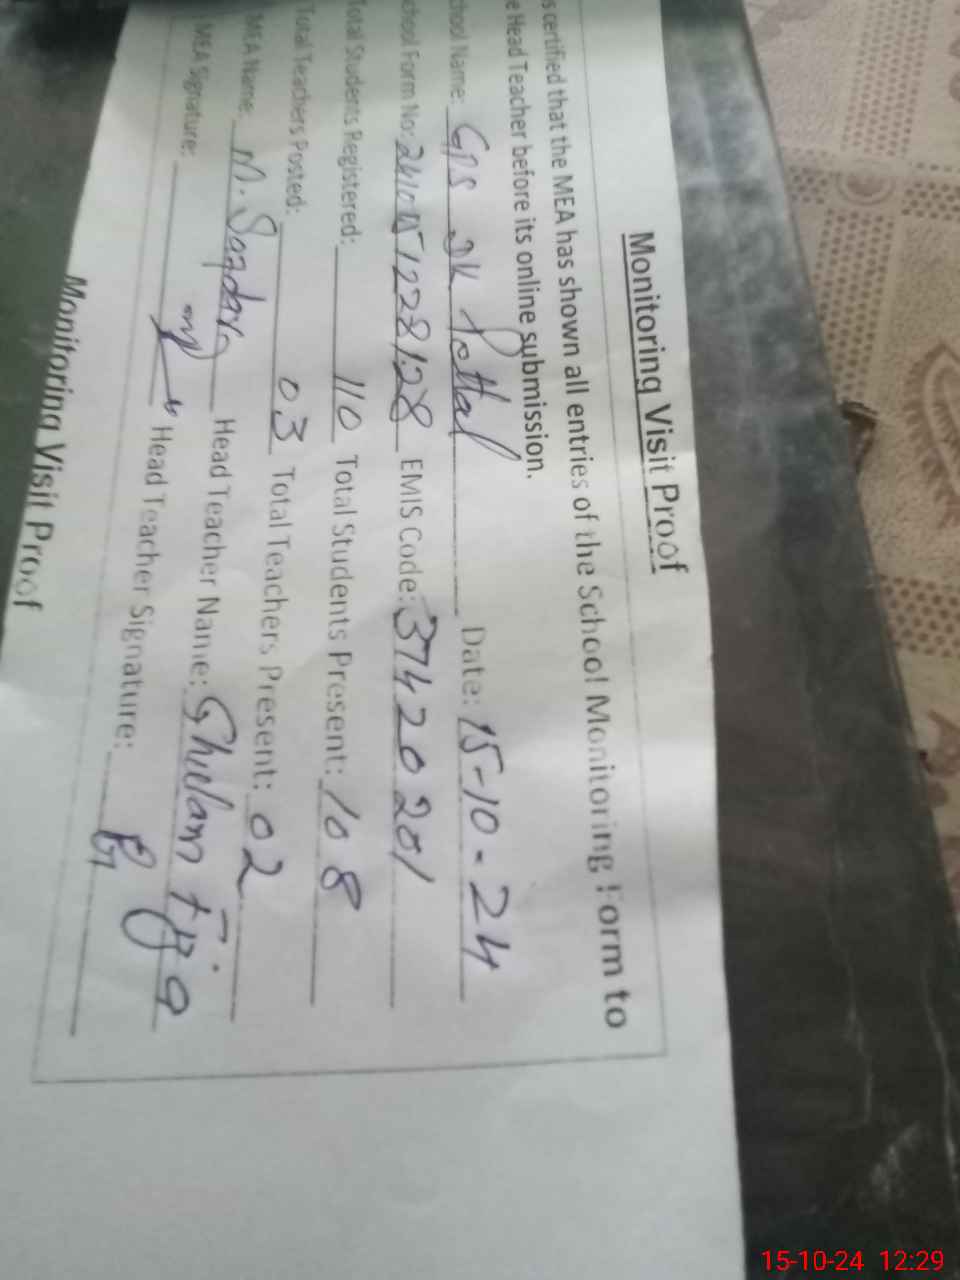 Monitoring Visit Proof
s certified that the MEA has shown all entries of the School Monitoring Form to
e Head Teacher before its online submission.
chool Name: GPS DK Pottal Date: 15-10-24
chool Form No: EMIS Code: 37420201
Total Students Registered: 110 Total Students Present: 108
Total Teachers Posted: 03 Total Teachers Present: 02
MEA Name: M. Safdar Head Teacher Name: Ghulam
MEA Signature: Head Teacher Signature:
Monitoring Visit Proof
15-10-24 12:29